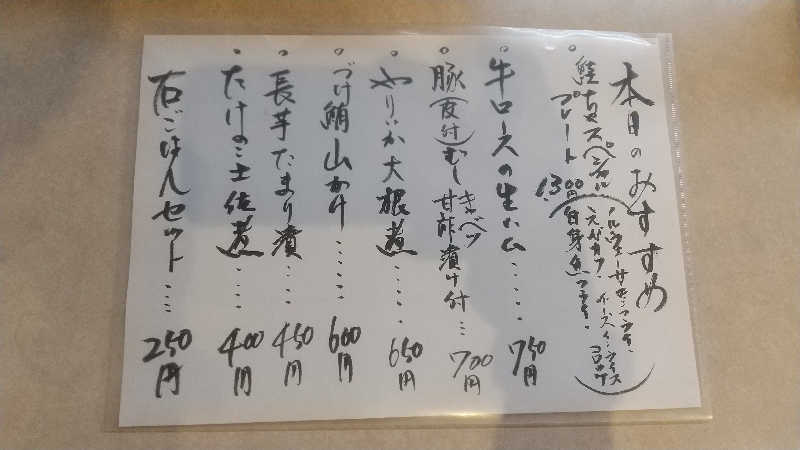 本日のおすすめ
鮭ちゃスペシャル
プレート
1,300円
ノルウェーサーモンフライ、
えびカツ、チーズインライス
コロッケ
白身魚フライ、
牛ロースの生ハム‥‥‥ 750円
豚(皮付)むし キャベツ
甘酢漬け付‥ 700円
やりいか大根煮‥‥‥ 650円
づけ鮪山かけ‥‥‥ 600円
長芋たまり漬‥‥ 450円
たけのこ土佐煮‥‥ 400円
石ごはんセット‥‥ 250円